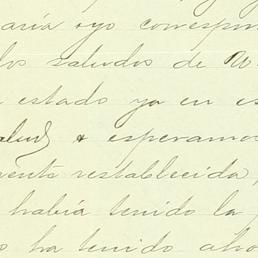 aría oyo correspon
los saludos de W
estado ya en es
alud & esperamos
mente restablecida,
había tenido la
s ha tenido aho